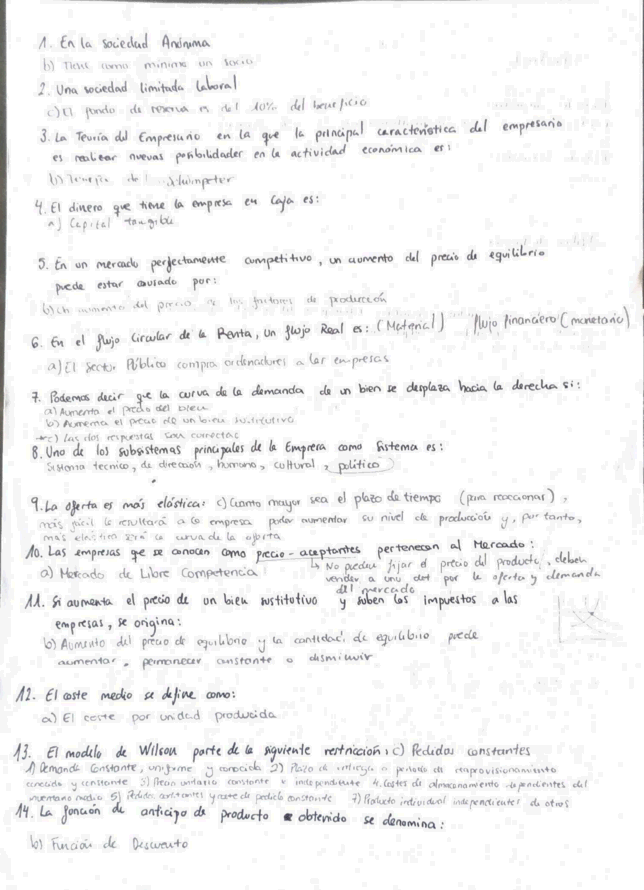 1. En la sociedad Anónima
b) Tiene como mínimo un socio
2. Una sociedad limitada laboral
c) El fondo de reserva es del 10% del beneficio
3. La Teoría del Empresario en la que la principal característica del empresario
es realizar nuevas posibilidades en la actividad económica es:
b) Teoría de Schumpeter
4. El dinero que tiene la empresa en Caja es:
a) Capital tangible
5. En un mercado perfectamente competitivo, un aumento del precio de equilibrio
puede estar causado por:
b) Un aumento del precio de los factores de producción
6. En el flujo Circular de la Renta, un flujo Real es: (Material) flujo financiero (monetario)
a) El Sector Público compra ordenadores a las empresas
7. Podemos decir que la curva de la demanda de un bien se desplaza hacia la derecha si:
a) Aumenta el precio del bien
b) Aumenta el precio de un bien sustitutivo
c) Las dos respuestas son correctas
8. Uno de los subsistemas principales de la Empresa como Sistema es:
Sistema técnico, de dirección, humano, cultural, político
9. La oferta es más elástica: c) Cuanto mayor sea el plazo de tiempo (para reaccionar),
más fácil le resultará a la empresa poder aumentar su nivel de producción y, por tanto,
más elástica será la curva de la oferta
10. Las empresas que se conocen como precio-aceptantes pertenecen al Mercado:
a) Mercado de Libre Competencia
↳ No pueden fijar el precio del producto, deben
vender a uno det por la oferta y demanda
del mercado
11. Si aumenta el precio de un bien sustitutivo y suben los impuestos a las
empresas, se origina:
b) Aumento del precio de equilibrio y la cantidad de equilibrio puede
aumentar, permanecer constante o disminuir
12. El coste medio se define como:
a) El coste por unidad producida
13. El modelo de Wilson parte de la siguiente restricción: c) Pedidos constantes
1) Demanda Constante, uniforme y conocida 2) Plazo de entrega o periodo de reaprovisionamiento
conocido y constante 3) Precio unitario constante e independiente 4. Costes de almacenamiento dependientes del
inventario medio 5) Pedidos constantes y coste de pedido constante 7) Producto individual independientes de otros
14. La función de anticipo de producto obtenido se denomina:
b) Función de Descuento